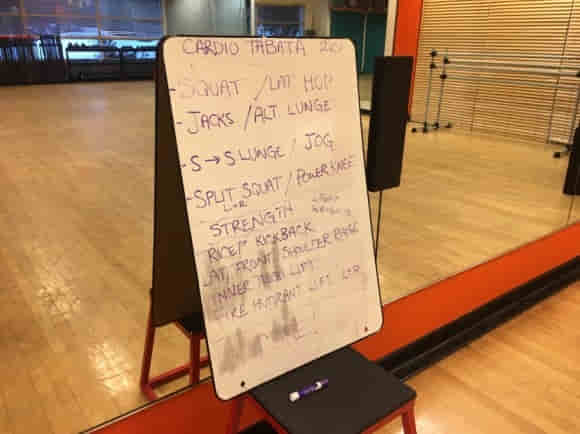 CARDIO TABATA
- SQUAT / LAT HOP
- JACKS / ALT. LUNGE
- S → S LUNGE / JOG
- SPLIT SQUAT / POWER KNEE
L & R
STRENGTH
RICEP KICKBACK
LAT/FRONT SHOULTER RAISE
INNER THIGH LIFT
FIRE HYDRANT LIFT L&R